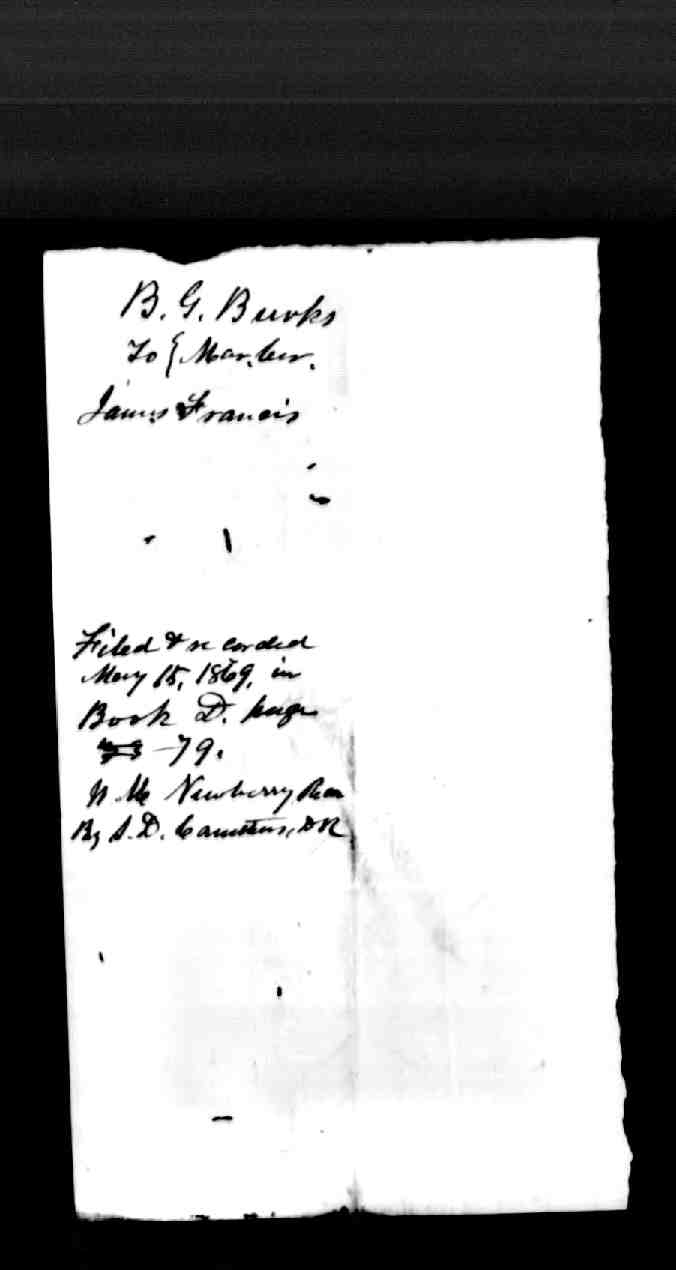 B. G. Burks
To { Mar. Cer.
James Francis
Filed & recorded
May 15, 1869, in
Book D. page
79.
Newberry Rec
By S. D. DR